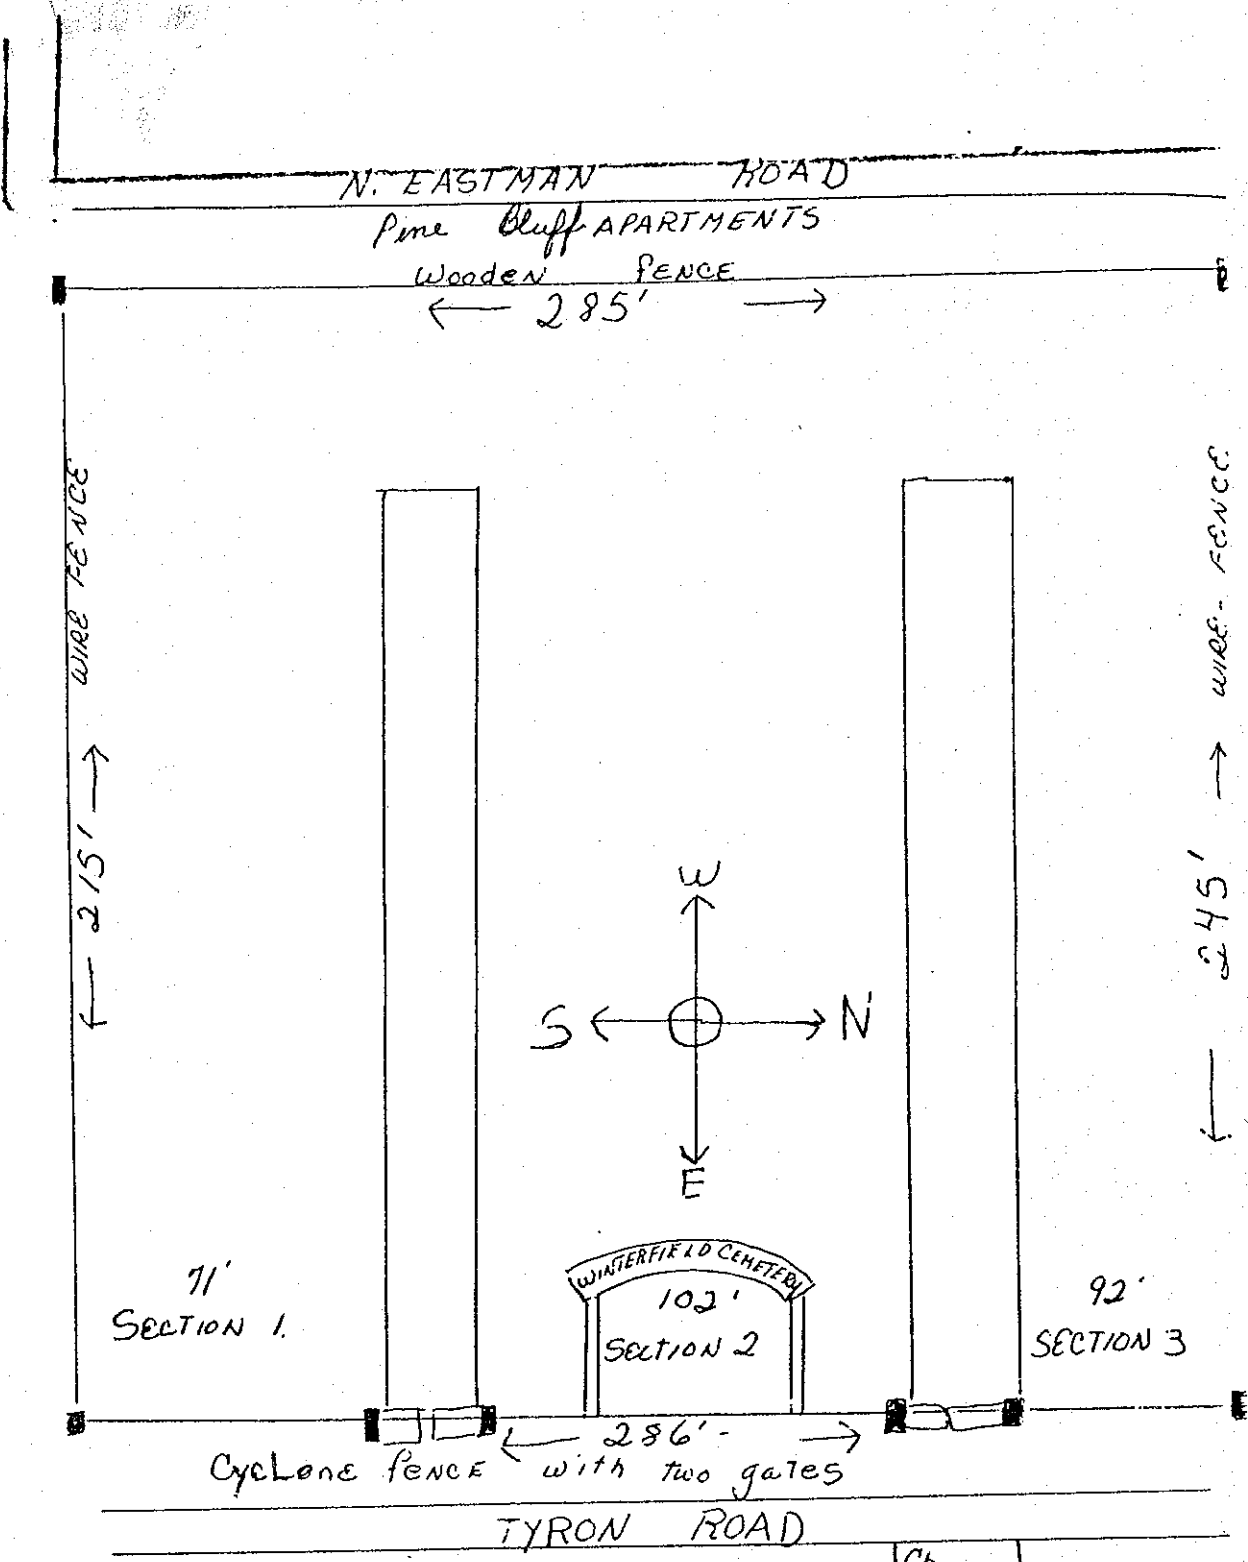 N. EASTMAN ROAD
Pine Bluff APARTMENTS
Wooden FENCE
285'
WIRE FENCE
215'
WIRE - FENCE
245'
W
S
N
E
WINTERFIELD CEMETERY
71'
SECTION 1.
102'
SECTION 2
92'
SECTION 3
286'-
Cyclone fence with two gates
TYRON ROAD
Ch